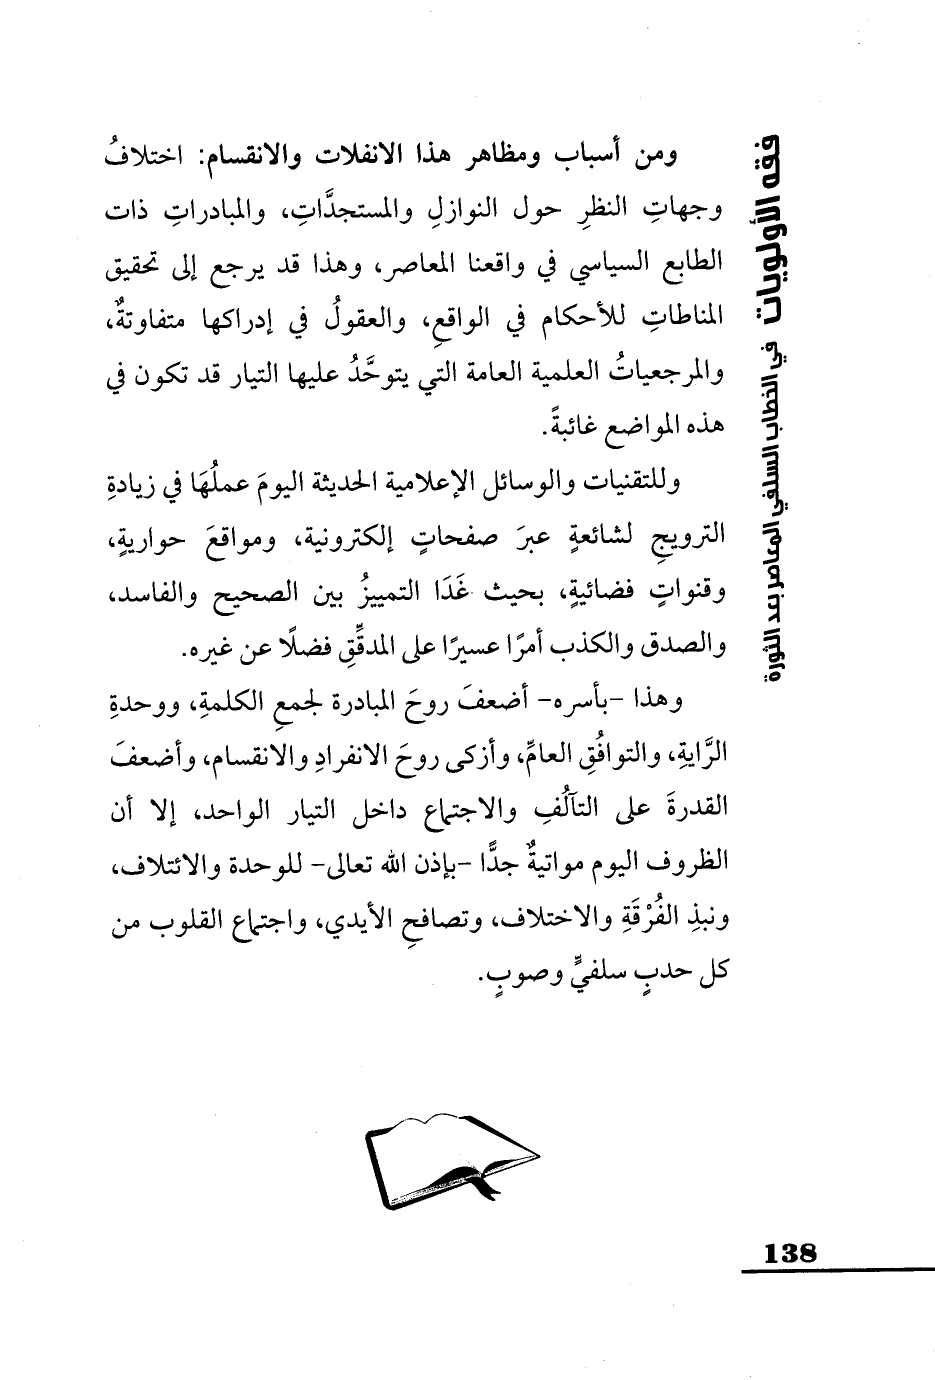 فقه الأولويات في الخطاب السلفي المعاصر بعد الثورة
ومن أسباب ومظاهر هذا الانفلات والانقسام: اختلافُ
وجهاتِ النظرِ حول النوازلِ والمستجدَّاتِ، والمبادراتِ ذات
الطابع السياسي في واقعنا المعاصر، وهذا قد يرجع إلى تحقيق
المناطاتِ للأحكام في الواقعِ، والعقولُ في إدراكها متفاوتةٌ،
والمرجعياتُ العلمية العامة التي يتوحَّدُ عليها التيار قد تكون في
هذه المواضع غائبةً.
وللتقنيات والوسائل الإعلامية الحديثة اليومَ عملُهَا في زيادةِ
الترويجِ لشائعةٍ عبرَ صفحاتٍ إلكترونية، ومواقعَ حواريةٍ،
وقنواتٍ فضائيةٍ، بحيث غَدَا التمييزُ بين الصحيح والفاسد،
والصدق والكذب أمرًا عسيرًا على المدقِّقِ فضلًا عن غيره.
وهذا -بأسره- أضعفَ روحَ المبادرة لجمعِ الكلمةِ، ووحدةِ
الرَّايةِ، والتوافُقِ العامِّ، وأزكى روحَ الانفرادِ والانقسام، وأضعفَ
القدرةَ على التآلُفِ والاجتماع داخل التيار الواحد، إلا أن
الظروف اليوم مواتيةٌ جدًّا -بإذن الله تعالى- للوحدة والائتلاف،
ونبذِ الفُرْقَةِ والاختلاف، وتصافحِ الأيدي، واجتماع القلوب من
كل حدبٍ سلفيٍّ وصوبٍ.
138